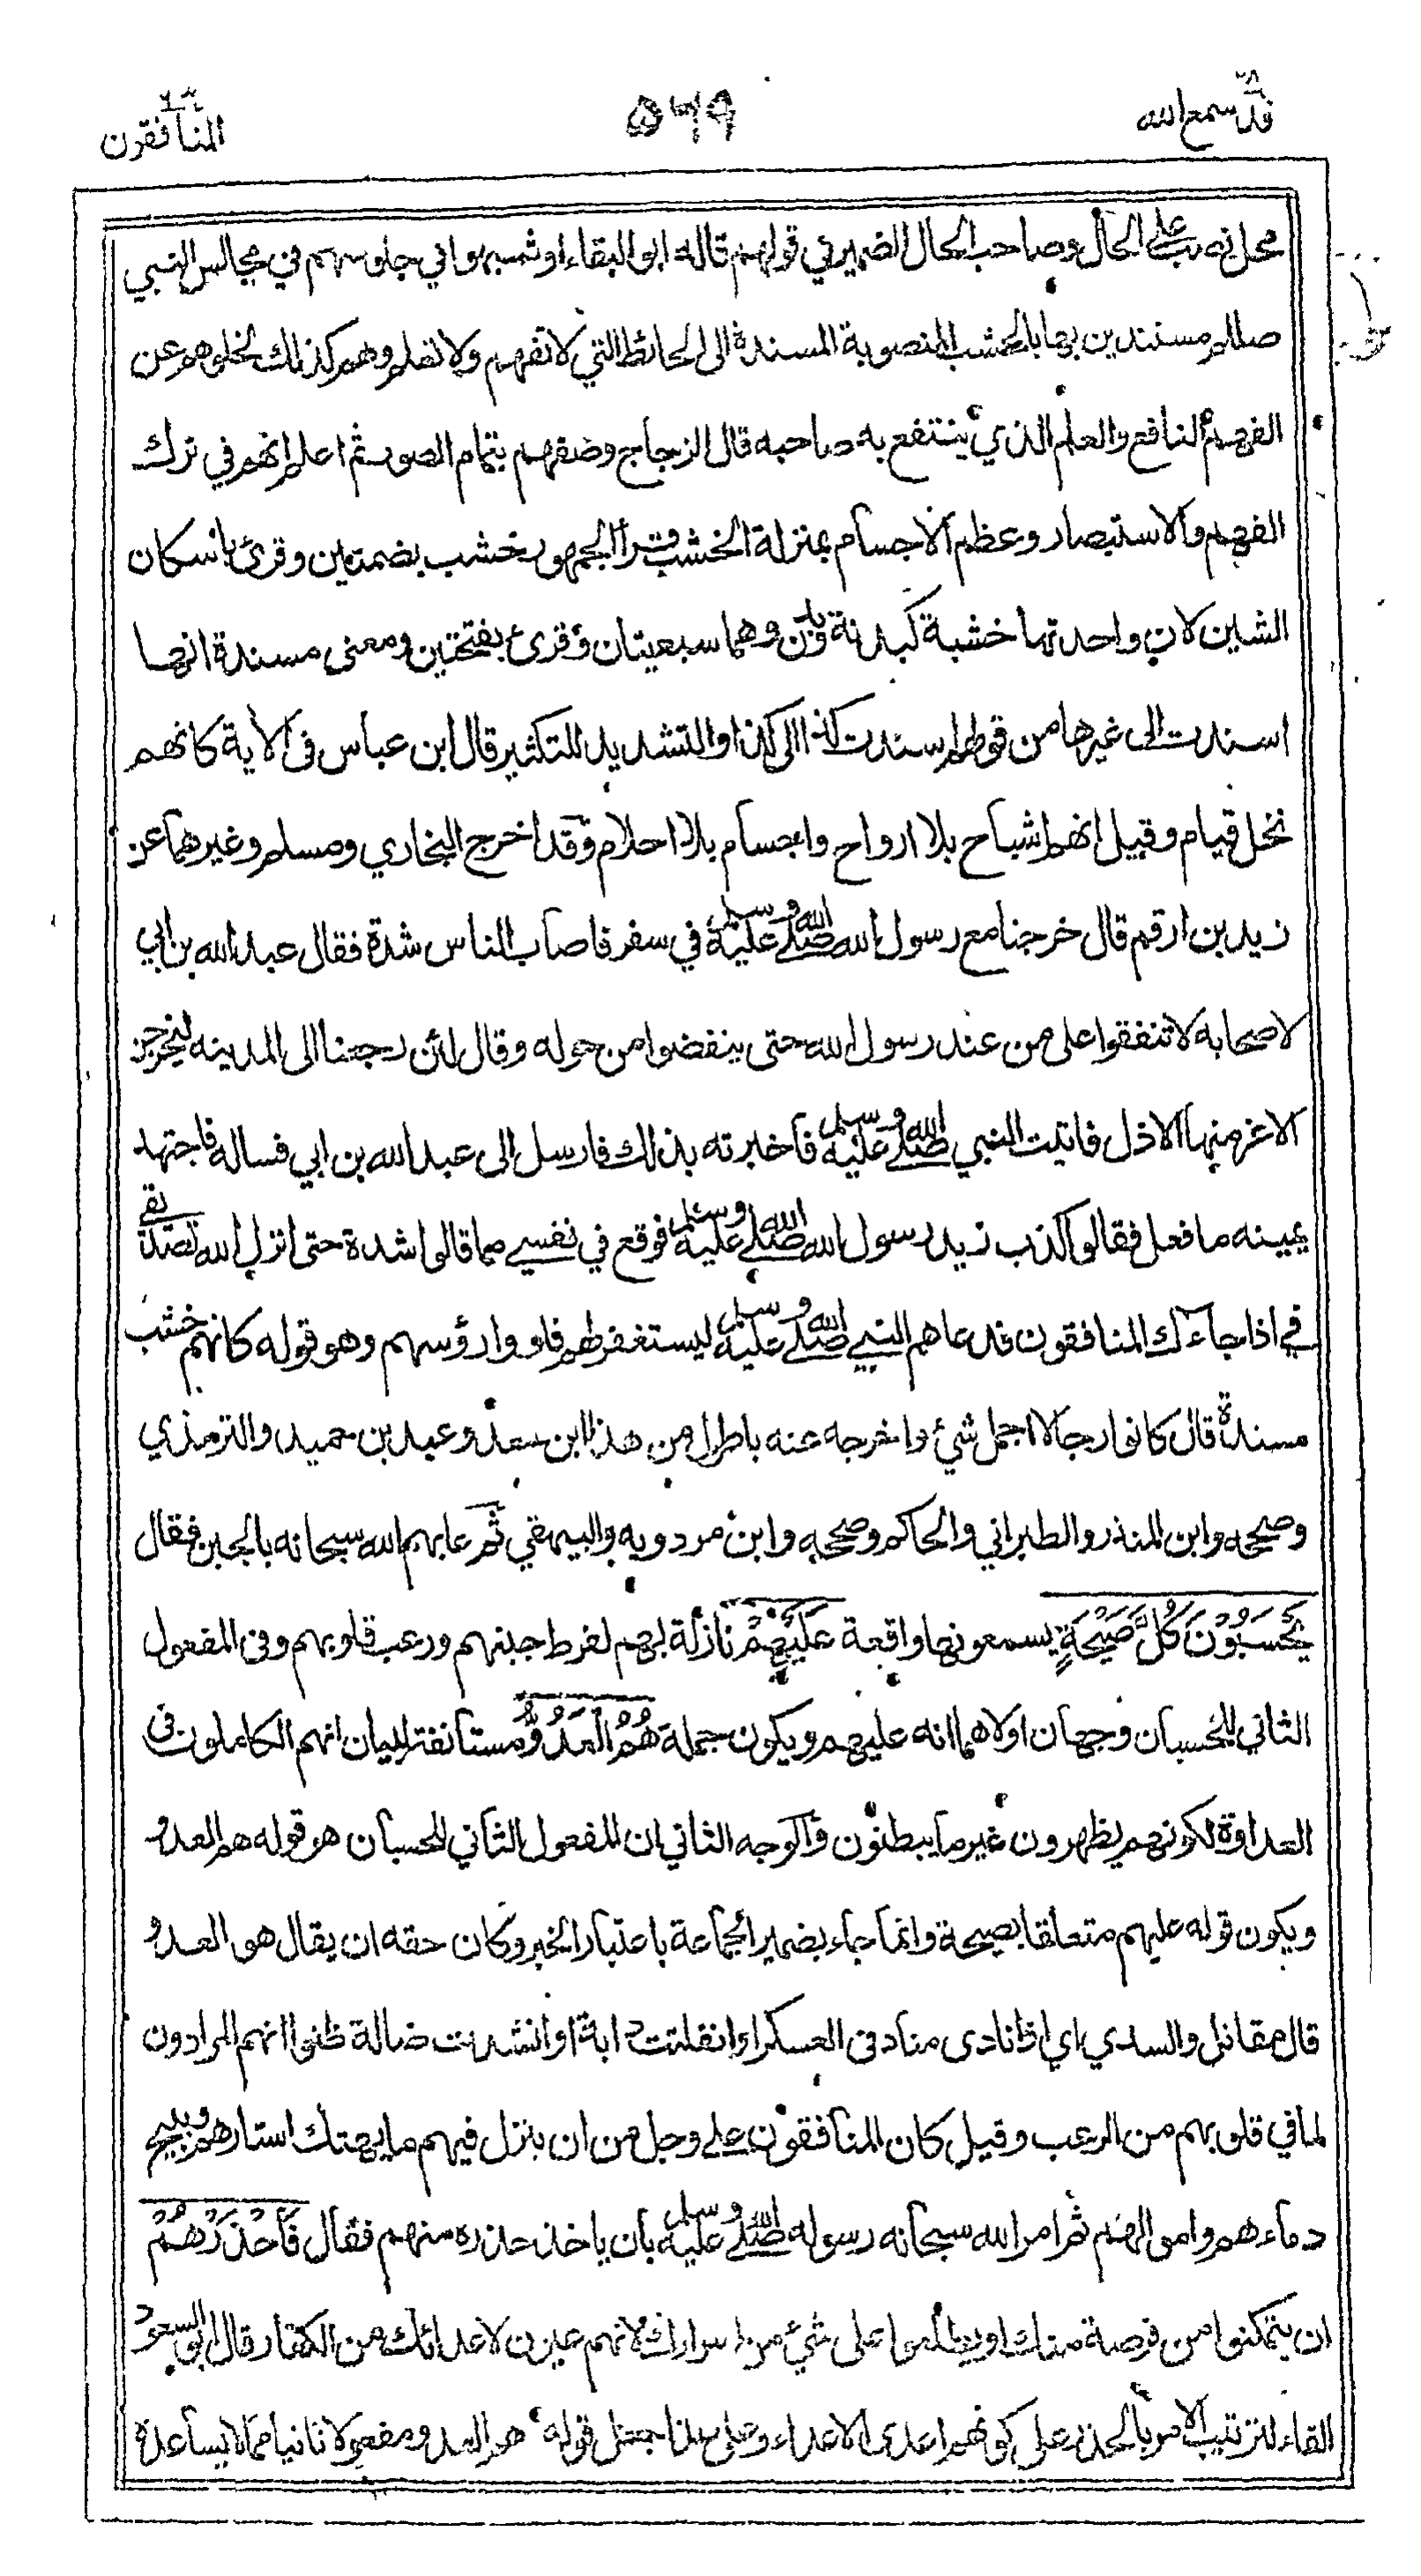 قد سمع الله ٥٦٩ المنافقون
محل نصب على الحال وصاحب الحال الضمير في قولهم قاله ابو البقاء او شبهوا في جلوسهم في مجالس النبي
صللم مستندين بها بالخشب المنصوبة المسندة الى الحائط التي لا تفهم ولا تعلم وهم كذلك لخلوهم عن
الفهم النافع والعلم الذي ينتفع به صاحبه قال الزجاج وصفهم بتمام الصور ثم اعلم انهم في ترك
الفهم والاستبصار وعظم الاجسام بمنزلة الخشب وقرأ الجمهور خشب بضمتين وقرئ باسكان
الشين لان واحدتها خشبة كبدنة وبدن وهما سبعيتان وقرئ بفتحتين ومعنى مسندة انها
اسندت الى غيرها من قولهم اسندت كذا الى كذا والتشديد للتكثير قال ابن عباس في الآية كانهم
نخل قيام وقيل انهم اشباح بلا ارواح واجسام بلا احلام وقد اخرج البخاري ومسلم وغيرهما عن
زيد بن ارقم قال خرجنا مع رسول الله صلى الله عليه وسلم في سفر فاصاب الناس شدة فقال عبد الله بن ابي
لاصحابه لا تنفقوا على من عند رسول الله حتى ينفضوا من حوله وقال لئن رجعنا الى المدينه ليخرجن
الاعز منها الاذل فاتيت النبي صلى الله عليه وسلم فاخبرته بذلك فارسل الى عبد الله بن ابي فساله فاجتهد
يمينه ما فعل فقالوا كذب زيد رسول الله صلى الله عليه وسلم فوقع في نفسي مما قالوا شدة حتى انزل الله تصديقي
في اذا جاءك المنافقون فدعاهم النبي صلى الله عليه وسلم ليستغفر لهم فلووا رؤسهم وهو قوله كانهم خشب
مسندة قال كانوا رجالا اجمل شئ واخرجه عنه باطول من هذا ابن سعد وعبد بن حميد والترمذي
وصححه وابن المنذر والطبراني والحاكم وصححه وابن مردويه والبيهقي ثم عابهم الله سبحانه بالجبن فقال
يَحْسَبُوْنَ كُلَّ صَيْحَةٍ يسمعونها واقعة عَلَيْهِمْ نازلة بهم لفرط جبنهم ورعب قلوبهم وفي المفعول
الثاني للحسبان وجهان اولاهما انه عليهم ويكون جملة هُمُ الْعَدُوُّ مستأنفة لبيان انهم الكاملون في
العداوة لكونهم يظهرون غير ما يبطنون والوجه الثاني ان المفعول الثاني للحسبان هو قوله هم العدو
ويكون قوله عليهم متعلقا بصيحة وانما جاء بضمير الجماعة باعتبار الخبر وكان حقه ان يقال هو العدو
قال مقاتل والسدي اي اذا نادى مناد في العسكر او انفلتت دابة او انشدت ضالة ظنوا انهم المرادون
لما في قلوبهم من الرعب وقيل كان المنافقون على وجل من ان ينزل فيهم ما يهتك استارهم ويبيح
دماءهم واموالهم ثم امر الله سبحانه رسوله صلى الله عليه وسلم بان ياخذ حذره منهم فقال فَاحْذَرْهُمْ
ان يتمكنوا من فرصة منك او يطلعوا على شئ من اسرارك لانهم عيون لاعدائك من الكفار قال ابو السعود
الفاء لترتيب الامر بالحذر على كونهم اعدى الاعداء وعلى هذا جعل قوله هم العدو مفعولا ثانيا مما لا يساعده